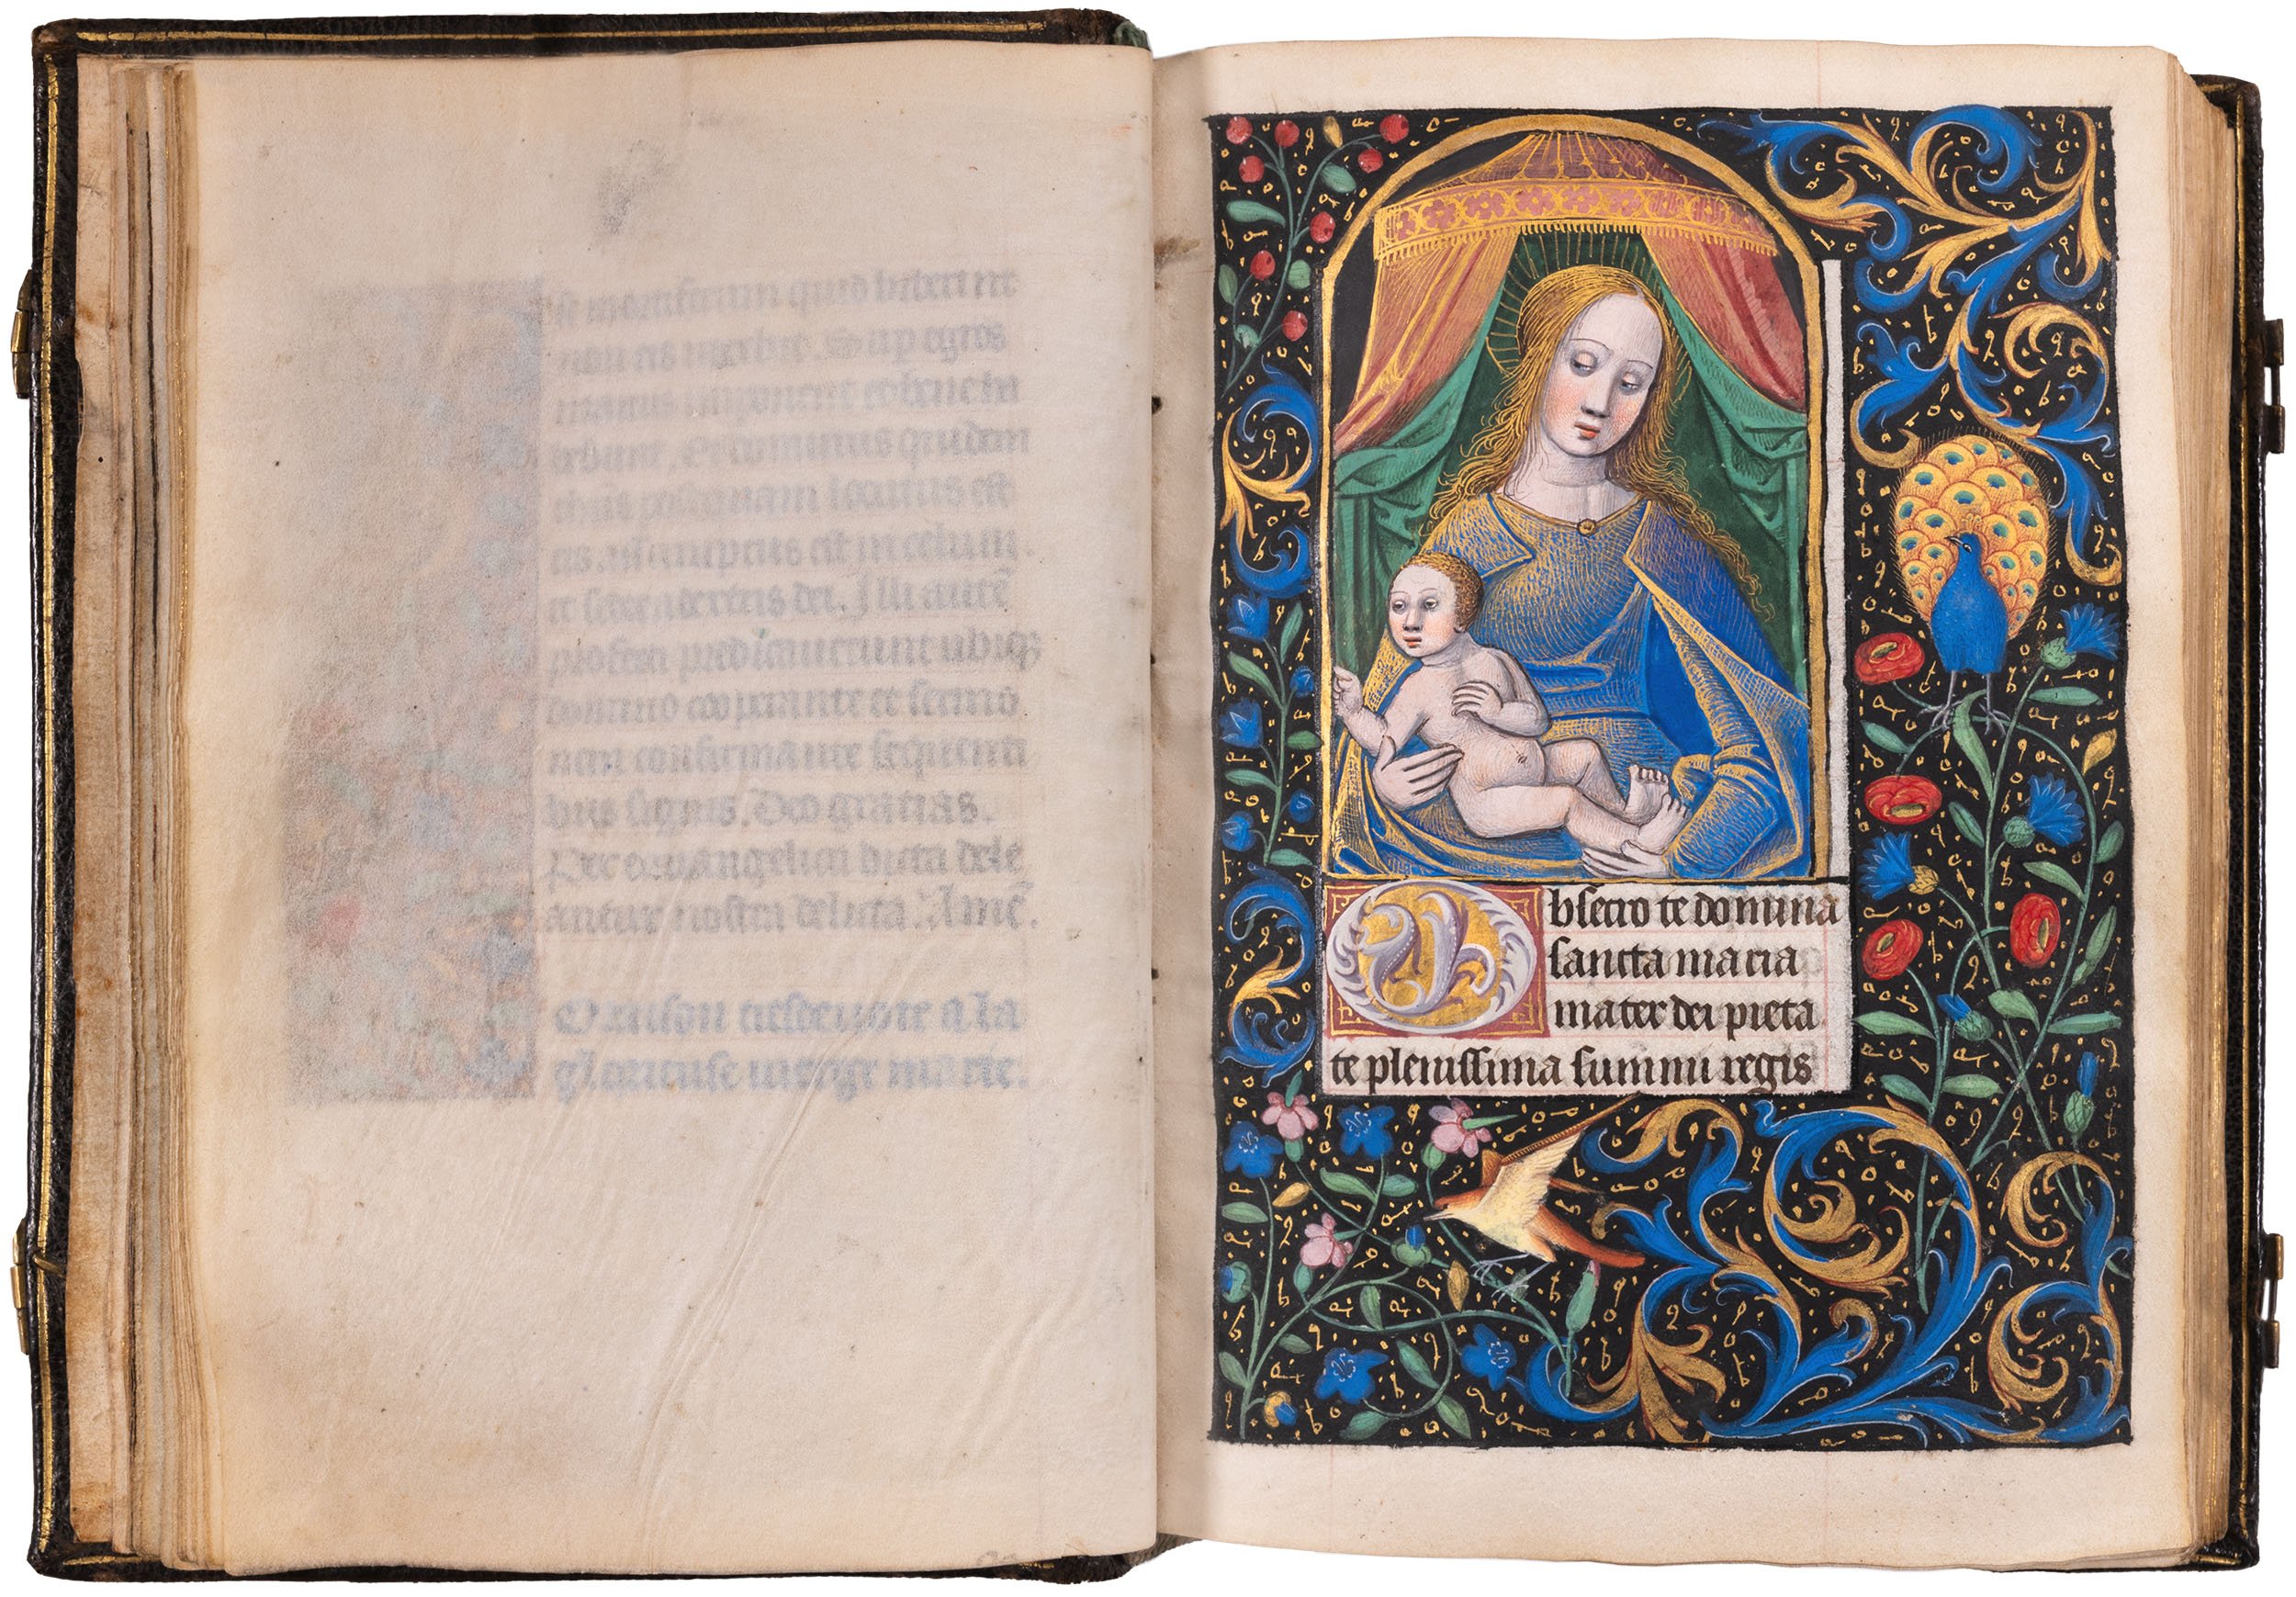 mortiferum quid biberint
non eis nocebit. Sup egros
manus imponent et bene ha
bebunt. Et dominus quidem
postquam locutus est
eis. assumptus est in celum.
et sedet a dextris dei. Illi autē
profecti predicauerunt ubiqȝ
domino cooperante et sermo
nem confirmante sequenti
bus signis. Deo gratias.
Per euuangelica dicta dele
antur nostra delicta. Amē.
Oraison tresdeuote a la
glorieuse vierge marie.
Obsecro te domina
sancta maria
mater dei pieta
te plenissima summi regis